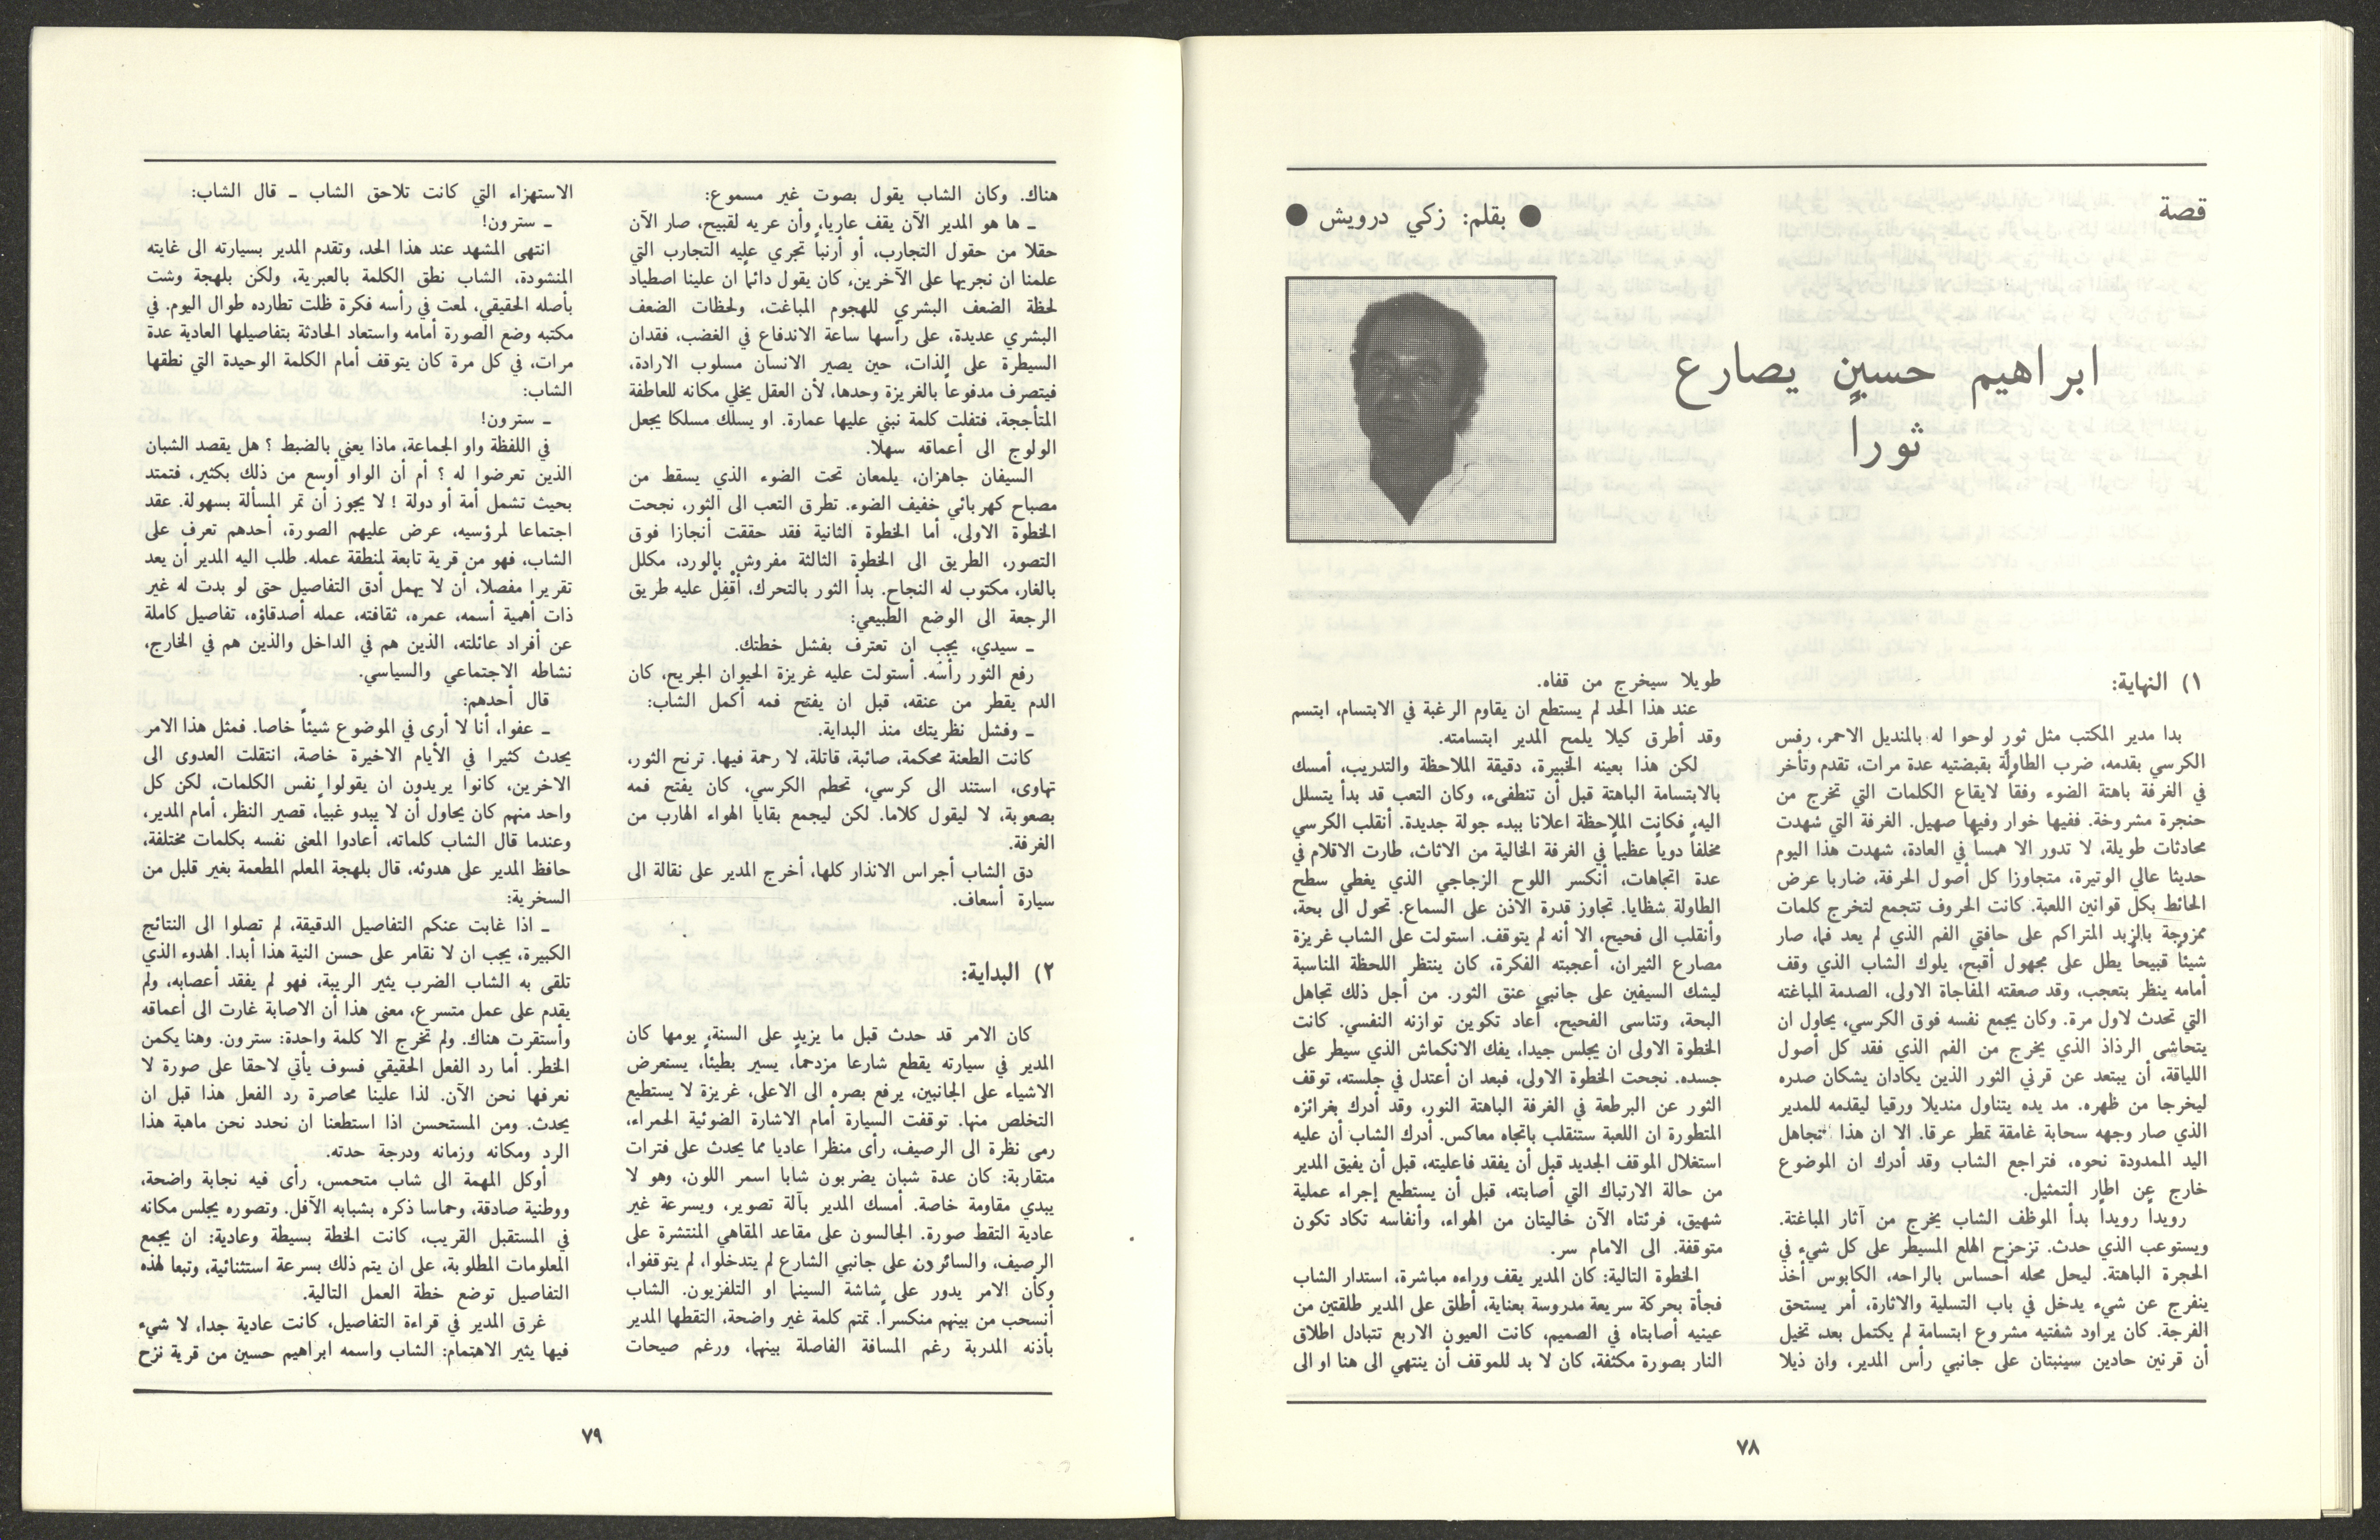 قصة
● بقلم: زكي درويش ●
ابراهيم حسين يصارع
ثوراً
١) النهاية:
بدا مدير المكتب مثل ثور لوحوا له بالمنديل الاحمر، رفس
الكرسي بقدمه، ضرب الطاولة بقبضتيه عدة مرات، تقدم وتأخر
في الغرفة باهتة الضوء وفقاً لايقاع الكلمات التي تخرج من
حنجرة مشروخة. ففيها خوار وفيها صهيل. الغرفة التي شهدت
محادثات طويلة، لا تدور الا همساً في العادة، شهدت هذا اليوم
حديثا عالي الوتيرة، متجاوزا كل أصول الحرفة، ضاربا عرض
الحائط بكل قوانين اللعبة. كانت الحروف تتجمع لتخرج كلمات
ممزوجة بالزبد المتراكم على حافتي الفم الذي لم يعد فما، صار
شيئاً قبيحاً يطل على مجهول أقبح، يلوك الشاب الذي وقف
أمامه ينظر بتعجب، وقد صعقته المفاجاة الاولى، الصدمة المباغته
التي تحدث لاول مرة. وكان يجمع نفسه فوق الكرسي، يحاول ان
يتحاشى الرذاذ الذي يخرج من الفم الذي فقد كل أصول
اللياقة، أن يبتعد عن قرني الثور الذين يكادان يشكان صدره
ليخرجا من ظهره. مد يده يتناول منديلا ورقيا ليقدمه للمدير
الذي صار وجهه سحابة غامقة تمطر عرقا. الا ان هذا تجاهل
اليد الممدودة نحوه، فتراجع الشاب وقد أدرك ان الموضوع
خارج عن اطار التمثيل.
رويداً رويداً بدأ الموظف الشاب يخرج من آثار المباغتة.
ويستوعب الذي حدث. تزحزح الهلع المسيطر على كل شيء في
الحجرة الباهتة. ليحل محله أحساس بالراحه، الكابوس أخذ
ينفرج عن شيء يدخل في باب التسلية والاثارة، أمر يستحق
الفرجة. كان يراود شفتيه مشروع ابتسامة لم يكتمل بعد، تخيل
أن قرنين حادين سينبتان على جانبي رأس المدير، وان ذيلا
طويلا سيخرج من قفاه.
عند هذا الحد لم يستطع ان يقاوم الرغبة في الابتسام، ابتسم
وقد أطرق كيلا يلمح المدير ابتسامته.
لكن هذا بعينه الخبيرة، دقيقة الملاحظة والتدريب، أمسك
بالابتسامة الباهتة قبل أن تنطفىء، وكان التعب قد بدأ يتسلل
اليه، فكانت الملاحظة اعلانا ببدء جولة جديدة. أنقلب الكرسي
مخلفاً دوياً عظيماً في الغرفة الخالية من الاثاث، طارت الاقلام في
عدة اتجاهات، أنكسر اللوح الزجاجي الذي يغطي سطح
الطاولة شظايا. تجاوز قدرة الاذن على السماع. تحول الى بحة،
وأنقلب الى فحيح، الا أنه لم يتوقف. استولت على الشاب غريزة
مصارع الثيران، أعجبته الفكرة، كان ينتظر اللحظة المناسبة
ليشك السيفين على جانبي عنق الثور. من أجل ذلك تجاهل
البحة، وتناسى الفحيح، أعاد تكوين توازنه النفسي. كانت
الخطوة الاولى ان يجلس جيدا، يفك الانكماش الذي سيطر على
جسده. نجحت الخطوة الاولى، فبعد ان أعتدل في جلسته، توقف
الثور عن البرطعة في الغرفة الباهتة النور، وقد أدرك بغرائزه
المتطورة ان اللعبة ستنقلب باتجاه معاكس. أدرك الشاب أن عليه
استغلال الموقف الجديد قبل أن يفقد فاعليته، قبل أن يفيق المدير
من حالة الارتباك التي أصابته، قبل أن يستطيع إجراء عملية
شهيق، فرئتاه الآن خاليتان من الهواء، وأنفاسه تكاد تكون
متوقفة. الى الامام سر.
الخطوة التالية: كان المدير يقف وراءه مباشرة، استدار الشاب
فجأة بحركة سريعة مدروسة بعناية، أطلق على المدير طلقتين من
عينيه أصابتاه في الصميم، كانت العيون الاربع تتبادل اطلاق
النار بصورة مكثفة، كان لا بد للموقف أن ينتهي الى هنا او الى
٧٨
هناك. وكان الشاب يقول بصوت غير مسموع:
ـ ها هو المدير الآن يقف عاريا، وأن عريه لقبيح، صار الآن
حقلا من حقول التجارب، أو أرنباً تجري عليه التجارب التي
علمنا ان نجريها على الآخرين، كان يقول دائماً ان علينا اصطياد
لحظة الضعف البشري للهجوم المباغت، ولحظات الضعف
البشري عديدة، على رأسها ساعة الاندفاع في الغضب، فقدان
السيطرة على الذات، حين يصير الانسان مسلوب الارادة،
فيتصرف مدفوعاً بالغريزة وحدها، لأن العقل يخلي مكانه للعاطفة
المتأججة، فتفلت كلمة نبني عليها عمارة. او يسلك مسلكا يجعل
الولوج الى أعماقه سهلا.
السيفان جاهزان، يلمعان تحت الضوء الذي يسقط من
مصباح كهربائي خفيف الضوء. تطرق التعب الى الثور، نجحت
الخطوة الاولى، أما الخطوة الثانية فقد حققت أنجازا فوق
التصور، الطريق الى الخطوة الثالثة مفروش بالورد، مكلل
بالغار، مكتوب له النجاح. بدأ الثور بالتحرك، أقْفِلْ عليه طريق
الرجعة الى الوضع الطبيعي:
ـ سيدي، يجب ان تعترف بفشل خطتك.
رفع الثور رأسه. أستولت عليه غريزة الحيوان الجريح، كان
الدم يقطر من عنقه، قبل ان يفتح فمه أكمل الشاب:
ـ وفشل نظريتك منذ البداية.
كانت الطعنة محكمة، صائبة، قاتلة، لا رحمة فيها. ترنح الثور،
تهاوى، استند الى كرسي، تحطم الكرسي، كان يفتح فمه
بصعوبة، لا ليقول كلاما. لكن ليجمع بقايا الهواء الهارب من
الغرفة.
دق الشاب أجراس الانذار كلها، أخرج المدير على نقالة الى
سيارة أسعاف.
٢) البداية:
كان الامر قد حدث قبل ما يزيد على السنة، يومها كان
المدير في سيارته يقطع شارعا مزدحماً، يسير بطيئاً، يستعرض
الاشياء على الجانبين، يرفع بصره الى الاعلى، غريزة لا يستطيع
التخلص منها. توقفت السيارة أمام الاشارة الضوئية الحمراء،
رمى نظرة الى الرصيف، رأى منظرا عاديا مما يحدث على فترات
متقاربة: كان عدة شبان يضربون شابا اسمر اللون، وهو لا
يبدي مقاومة خاصة. أمسك المدير بآلة تصوير، وبسرعة غير
عادية التقط صورة. الجالسون على مقاعد المقاهي المنتشرة على
الرصيف، والسائرون على جانبي الشارع لم يتدخلوا، لم يتوقفوا،
وكأن الامر يدور على شاشة السينما او التلفزيون. الشاب
أنسحب من بينهم منكسراً. تمتم كلمة غير واضحة، التقطها المدير
بأذنه المدربة رغم المسافة الفاصلة بينهما، ورغم صيحات
الاستهزاء التي كانت تلاحق الشاب ـ قال الشاب:
ـ سترون!
انتهى المشهد عند هذا الحد، وتقدم المدير بسيارته الى غايته
المنشودة، الشاب نطق الكلمة بالعبرية، ولكن بلهجة وشت
بأصله الحقيقي، لمعت في رأسه فكرة ظلت تطارده طوال اليوم. في
مكتبه وضع الصورة أمامه واستعاد الحادثة بتفاصيلها العادية عدة
مرات، في كل مرة كان يتوقف أمام الكلمة الوحيدة التي نطقها
الشاب:
ـ سترون!
في اللفظة واو الجماعة، ماذا يعني بالضبط ؟ هل يقصد الشبان
الذين تعرضوا له ؟ أم أن الواو أوسع من ذلك بكثير، فتمتد
بحيث تشمل أمة أو دولة ! لا يجوز أن تمر المسألة بسهولة. عقد
اجتماعا لمرؤسيه، عرض عليهم الصورة، أحدهم تعرف على
الشاب، فهو من قرية تابعة لمنطقة عمله. طلب اليه المدير أن يعد
تقريرا مفصلا، أن لا يهمل أدق التفاصيل حتى لو بدت له غير
ذات أهمية أسمه، عمره، ثقافته، عمله أصدقاؤه، تفاصيل كاملة
عن أفراد عائلته، الذين هم في الداخل والذين هم في الخارج،
نشاطه الاجتماعي والسياسي.
قال أحدهم:
ـ عفوا، أنا لا أرى في الموضوع شيئاً خاصا. فمثل هذا الامر
يحدث كثيرا في الأيام الاخيرة خاصة، انتقلت العدوى الى
الاخرين، كانوا يريدون ان يقولوا نفس الكلمات، لكن كل
واحد منهم كان يحاول أن لا يبدو غبياً، قصير النظر، أمام المدير،
وعندما قال الشاب كلماته، أعادوا المعنى نفسه بكلمات مختلفة،
حافظ المدير على هدوئه، قال بلهجة المعلم المطعمة بغير قليل من
السخرية:
ـ اذا غابت عنكم التفاصيل الدقيقة، لم تصلوا الى النتائج
الكبيرة، يجب ان لا نقامر على حسن النية هذا أبدا. الهدوء الذي
تلقى به الشاب الضرب يثير الريبة، فهو لم يفقد أعصابه، ولم
يقدم على عمل متسرع، معنى هذا أن الاصابة غارت الى أعماقه
وأستقرت هناك. ولم تخرج الا كلمة واحدة: سترون. وهنا يكمن
الخطر. أما رد الفعل الحقيقي فسوف يأتي لاحقا على صورة لا
نعرفها نحن الآن. لذا علينا محاصرة رد الفعل هذا قبل ان
يحدث. ومن المستحسن اذا استطعنا ان نحدد نحن ماهية هذا
الرد ومكانه وزمانه ودرجة حدته.
أوكل المهمة الى شاب متحمس، رأى فيه نجابة واضحة،
ووطنية صادقة، وحماسا ذكره بشبابه الآفل. وتصوره يجلس مكانه
في المستقبل القريب، كانت الخطة بسيطة وعادية: ان يجمع
المعلومات المطلوبة، على ان يتم ذلك بسرعة استثنائية، وتبعا لهذه
التفاصيل توضع خطة العمل التالية.
غرق المدير في قراءة التفاصيل، كانت عادية جدا، لا شيء
فيها يثير الاهتمام: الشاب واسمه ابراهيم حسين من قرية نزح
٧٩